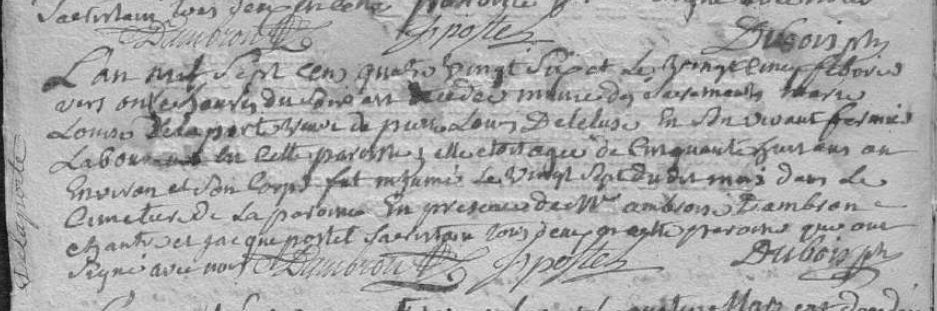 Sacristain tous deux
Dambron Jpostel Dubois ph
L'an mil Sept Cens quatre vingt Six et Le Vingt Cinq febvrier
vers onze heures du Soir est decedée munie des Sacremens marie
Louise Delaporte veuve de pierre Louis Deleluse En Son vivant fermier
Laboureur en Cette paroisse ; elle etoit agée de Cinquante huit ans ou
Environ et Son Corps fut inhumé Le Vingt Sept du dit mois dans Le
Cimetiere De La paroisse En presence de Me ambroise Dambron
Chantre et jacque postel Sacristain tous deux de cette paroisse qui ont
Signé avec nous Dambron Jpostel Dubois ph
Delaporte